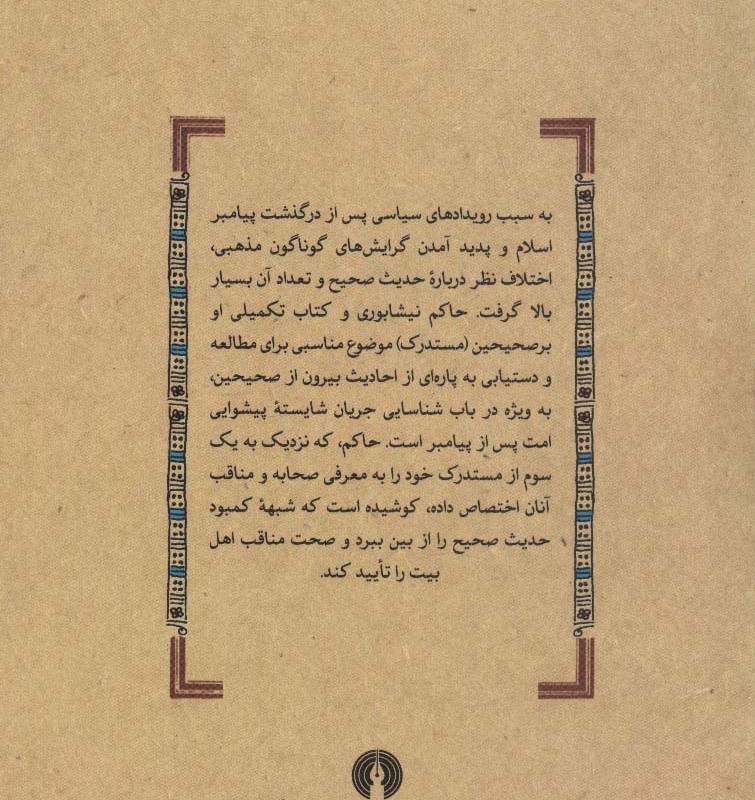 به سبب رویدادهای سیاسی پس از درگذشت پیامبر
اسلام و پدید آمدن گرایش‌های گوناگون مذهبی،
اختلاف نظر دربارۀ حدیث صحیح و تعداد آن بسیار
بالا گرفت. حاکم نیشابوری و کتاب تکمیلی او
برصحیحین (مستدرک) موضوع مناسبی برای مطالعه
و دستیابی به پاره‌ای از احادیث بیرون از صحیحین،
به ویژه در باب شناسایی جریان شایستۀ پیشوایی
امت پس از پیامبر است. حاکم، که نزدیک به یک
سوم از مستدرک خود را به معرفی صحابه و مناقب
آنان اختصاص داده، کوشیده است که شبهۀ کمبود
حدیث صحیح را از بین ببرد و صحت مناقب اهل
بیت را تأیید کند.